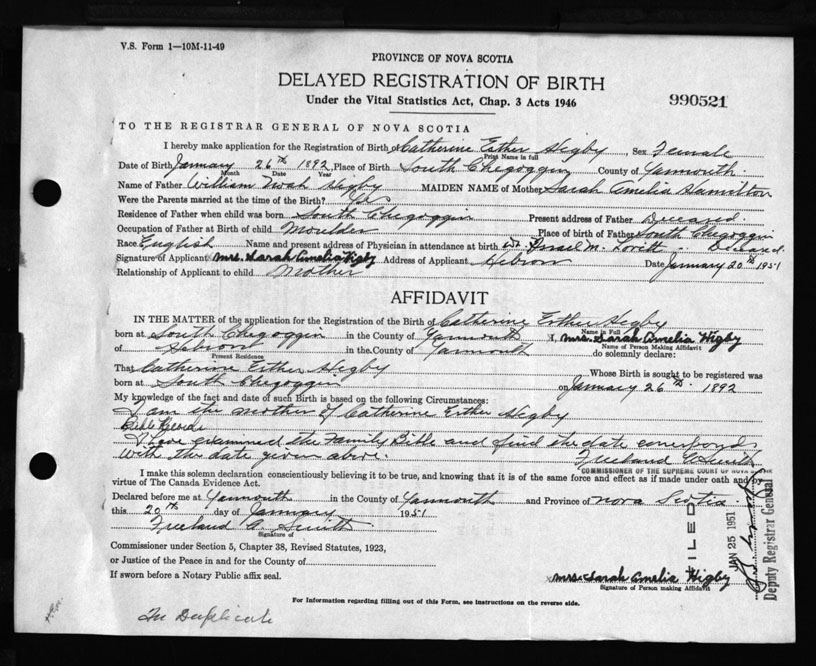 V.S. Form 1—10M-11-49
PROVINCE OF NOVA SCOTIA
DELAYED REGISTRATION OF BIRTH
Under the Vital Statistics Act, Chap. 3 Acts 1946
990521
TO THE REGISTRAR GENERAL OF NOVA SCOTIA
I hereby make application for the Registration of Birth Catherine Esther Higby, Sex Female
Print Name in full
Date of Birth January 26th 1892, Place of Birth South Chegoggin County of Yarmouth.
Month Date Year
Name of Father William Higby MAIDEN NAME of Mother Sarah Amelia Hamilton
Were the Parents married at the time of the Birth? Yes
Residence of Father when child was born South Chegoggin Present address of Father Deceased.
Occupation of Father at Birth of child Moulder Place of birth of Father South Chegoggin
Race English Name and present address of Physician in attendance at birth Israel M. Lovitt - Deceased.
Signature of Applicant Mrs. Sarah Amelia Higby Address of Applicant Hebron Date January 20th 1951
Relationship of Applicant to child Mother
AFFIDAVIT
IN THE MATTER of the application for the Registration of the Birth of Catherine Esther Higby
Name in Full
born at South Chegoggin in the County of Yarmouth I, Mrs. Sarah Amelia Higby
Name of Person Making Affidavit
of Hebron in the County of Yarmouth do solemnly declare:
Present Residence
That Catherine Esther Higby Whose Birth is sought to be registered was
born at South Chegoggin on January 26th 1892
My knowledge of the fact and date of such Birth is based on the following Circumstances:
I am the mother of Catherine Esther Higby
Bible Records
I have examined the Family Bible and find the date corresponds
with the date given above. Freeland A. Smith
COMMISSIONER OF THE SUPREME COURT OF NOVA
I make this solemn declaration conscientiously believing it to be true, and knowing that it is of the same force and effect as if made under oath and by
virtue of The Canada Evidence Act.
Declared before me at Yarmouth in the County of Yarmouth and Province of Nova Scotia
this 20th day of January 1951
Freeland A. Smith
Signature of
Commissioner under Section 5, Chapter 38, Revised Statutes, 1923,
or Justice of the Peace in and for the County of
If sworn before a Notary Public affix seal.
Mrs. Sarah Amelia Higby
Signature of Person making Affidavit
FILED
JAN 25 1951
Deputy Registrar General
For Information regarding filling out of this Form, see instructions on the reverse side.
In Duplicate